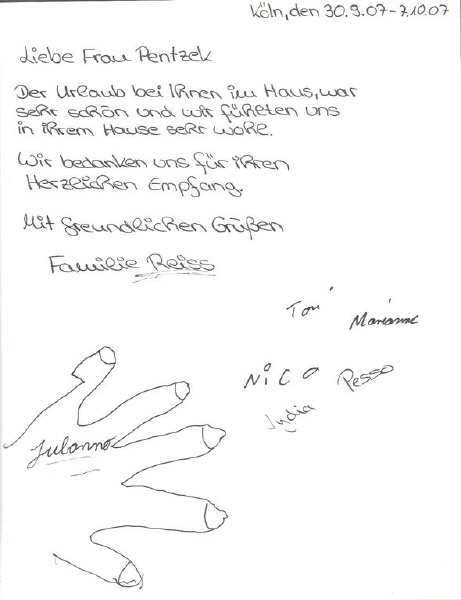 Köln, den 30.9.07-7.10.07
Liebe Frau Pentzek
Der Urlaub bei Ihnen im Haus, war
sehr schön und wir fühlten uns
in ihrem Hause sehr wohl.
Wir bedanken uns für ihren
Herzlichen Empfang.
Mit freundlichen Grüßen
Familie Reiss
Toni Marianne
Nico Pesso
Julianna